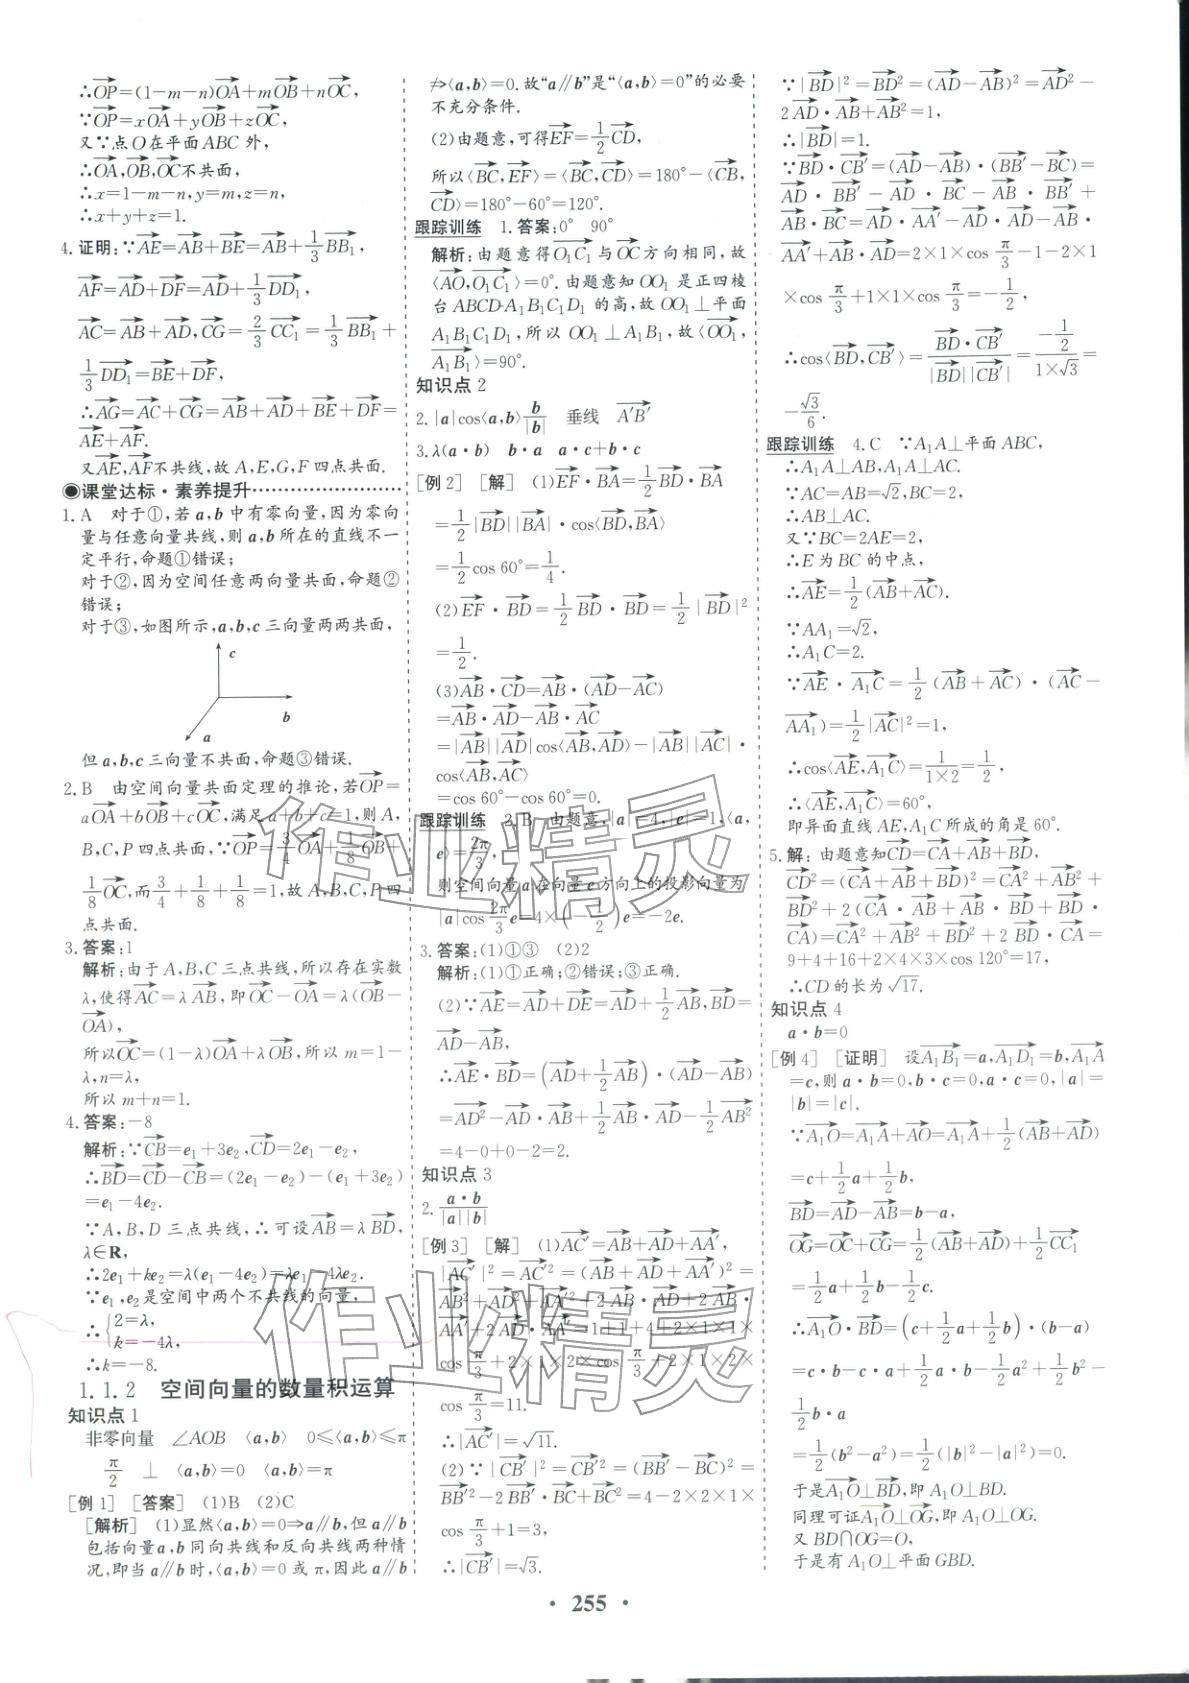 ∴OP=(1-m-n)OA+mOB+nOC,
∵OP=xOA+yOB+zOC,
又∵点O在平面ABC外,
∴OA,OB,OC不共面,
∴x=1-m-n,y=m,z=n,
∴x+y+z=1.
4. 证明:∵AE=AB+BE=AB+1/3 BB₁,
AF=AD+DF=AD+1/3 DD₁,
AC=AB+AD,CG=2/3 CC₁=1/3 BB₁+
1/3 DD₁=BE+DF,
∴AG=AC+CG=AB+AD+BE+DF=
AE+AF.
又AE,AF不共线,故A,E,G,F四点共面.
课堂达标·素养提升
1. A 对于①,若a,b中有零向量,因为零向
量与任意向量共线,则a,b所在的直线不一
定平行,命题①错误;
对于②,因为空间任意两向量共面,命题②
错误;
对于③,如图所示,a,b,c三向量两两共面,
c
b
a
但a,b,c三向量不共面,命题③错误.
2. B 由空间向量共面定理的推论,若OP=
aOA+bOB+cOC,满足a+b+c=1,则A,
B,C,P四点共面,∵OP=3/4 OA+1/8 OB+
1/8 OC,而3/4+1/8+1/8=1,故A,B,C,P四
点共面.
3. 答案:1
解析:由于A,B,C三点共线,所以存在实数
λ,使得AC=λAB,即OC-OA=λ(OB-
OA),
所以OC=(1-λ)OA+λOB,所以m=1-
λ,n=λ,
所以m+n=1.
4. 答案:-8
解析:∵CB=e₁+3e₂,CD=2e₁-e₂,
∴BD=CD-CB=(2e₁-e₂)-(e₁+3e₂)
=e₁-4e₂.
∵A,B,D三点共线,∴可设AB=λBD,
λ∈R,
∴2e₁+ke₂=λ(e₁-4e₂)=λe₁-4λe₂.
∵e₁,e₂是空间中两个不共线的向量,
∴{2=λ,
k=-4λ,
∴k=-8.
1.1.2 空间向量的数量积运算
知识点1
非零向量 ∠AOB ⟨a,b⟩ 0≤⟨a,b⟩≤π
π/2 ⊥ ⟨a,b⟩=0 ⟨a,b⟩=π
[例1] [答案] (1)B (2)C
[解析] (1)显然⟨a,b⟩=0⇒a∥b,但a∥b
包括向量a,b同向共线和反向共线两种情
况,即当a∥b时,⟨a,b⟩=0或π,因此a∥b
⇏⟨a,b⟩=0.故“a∥b”是“⟨a,b⟩=0”的必要
不充分条件.
(2)由题意,可得EF=1/2 CD,
所以⟨BC,EF⟩=⟨BC,CD⟩=180°-⟨CB,
CD⟩=180°-60°=120°.
跟踪训练 1. 答案:0° 90°
解析:由题意得O₁C₁与OC方向相同,故
⟨AO,O₁C₁⟩=0°.由题意知OO₁是正四棱
台ABCD-A₁B₁C₁D₁的高,故OO₁⊥平面
A₁B₁C₁D₁,所以OO₁⊥A₁B₁,故⟨OO₁,
A₁B₁⟩=90°.
知识点2
2. |a|cos⟨a,b⟩ b/|b| 垂线 A′B′
3. λ(a·b) b·a a·c+b·c
[例2] [解] (1)EF·BA=1/2 BD·BA
=1/2|BD||BA|·cos⟨BD,BA⟩
=1/2 cos 60°=1/4.
(2)EF·BD=1/2 BD·BD=1/2|BD|²
=1/2.
(3)AB·CD=AB·(AD-AC)
=AB·AD-AB·AC
=|AB||AD|cos⟨AB,AD⟩-|AB||AC|·
cos⟨AB,AC⟩
=cos 60°-cos 60°=0.
跟踪训练 2. B 由题意,|a|=4,|e|=1,⟨a,
e⟩=2π/3,
则空间向量a在向量e方向上的投影向量为
|a|cos 2π/3 e=4×(-1/2)e=-2e.
3. 答案:(1)①③ (2)2
解析:(1)①正确;②错误;③正确.
(2)∵AE=AD+DE=AD+1/2 AB,BD=
AD-AB,
∴AE·BD=(AD+1/2 AB)·(AD-AB)
=AD²-AD·AB+1/2 AB·AD-1/2 AB²
=4-0+0-2=2.
知识点3
2. a·b/|a||b|
[例3] [解] (1)AC′=AB+AD+AA′,
|AC′|²=AC′²=(AB+AD+AA′)²=
AB²+AD²+AA′²+2AB·AD+2AB·
AA′+2AD·AA′=1+1+4+2×1×1×
cos π/3+2×1×2×cos π/3+2×1×2×
cos π/3=11.
∴|AC′|=√11.
(2)∵|CB′|²=CB′²=(BB′-BC)²=
BB′²-2BB′·BC+BC²=4-2×2×1×
cos π/3+1=3,
∴|CB′|=√3.
∵|BD|²=BD²=(AD-AB)²=AD²-
2AD·AB+AB²=1,
∴|BD|=1.
∵BD·CB′=(AD-AB)·(BB′-BC)=
AD·BB′-AD·BC-AB·BB′+
AB·BC=AD·AA′-AD·AD-AB·
AA′+AB·AD=2×1×cos π/3-1-2×1
×cos π/3+1×1×cos π/3=-1/2,
∴cos⟨BD,CB′⟩=BD·CB′/|BD||CB′|=-1/2/1×√3=
-√3/6.
跟踪训练 4. C ∵A₁A⊥平面ABC,
∴A₁A⊥AB,A₁A⊥AC.
∵AC=AB=√2,BC=2,
∴AB⊥AC.
又∵BC=2AE=2,
∴E为BC的中点,
∴AE=1/2(AB+AC).
∵AA₁=√2,
∴A₁C=2.
∵AE·A₁C=1/2(AB+AC)·(AC-
AA₁)=1/2|AC|²=1,
∴cos⟨AE,A₁C⟩=1/1×2=1/2,
∴⟨AE,A₁C⟩=60°,
即异面直线AE,A₁C所成的角是60°.
5. 解:由题意知CD=CA+AB+BD,
CD²=(CA+AB+BD)²=CA²+AB²+
BD²+2(CA·AB+AB·BD+BD·
CA)=CA²+AB²+BD²+2BD·CA=
9+4+16+2×4×3×cos 120°=17,
∴CD的长为√17.
知识点4
a·b=0
[例4] [证明] 设A₁B₁=a,A₁D₁=b,A₁A
=c,则a·b=0,b·c=0,a·c=0,|a|=
|b|=|c|.
∵A₁O=A₁A+AO=A₁A+1/2(AB+AD)
=c+1/2a+1/2b,
BD=AD-AB=b-a,
OG=OC+CG=1/2(AB+AD)+1/2 CC₁
=1/2a+1/2b-1/2c.
∴A₁O·BD=(c+1/2a+1/2b)·(b-a)
=c·b-c·a+1/2a·b-1/2a²+1/2b²-
1/2b·a
=1/2(b²-a²)=1/2(|b|²-|a|²)=0.
于是A₁O⊥BD,即A₁O⊥BD.
同理可证A₁O⊥OG,即A₁O⊥OG.
又BD∩OG=O,
于是有A₁O⊥平面GBD.
·255·
作业精灵
作业精灵